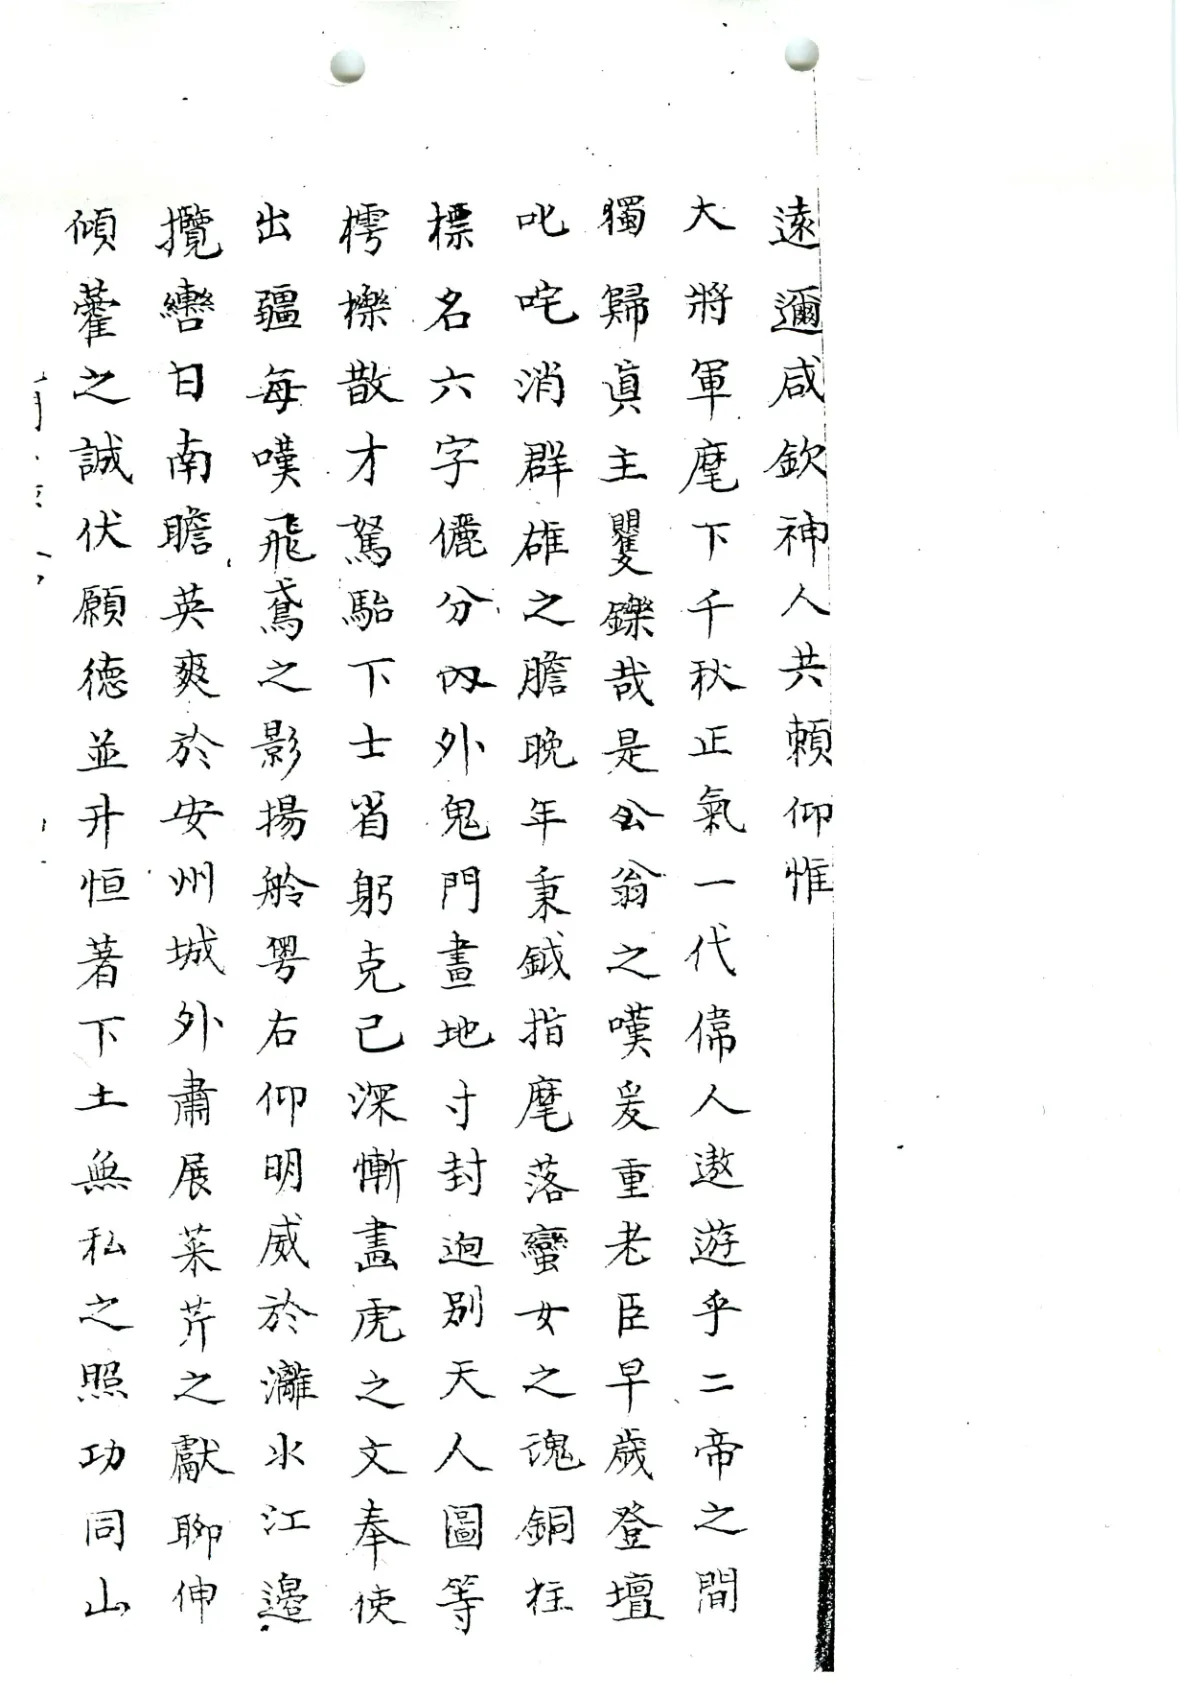 遠邇咸欽神人共賴仰惟
大將軍麾下千秋正氣一代偉人遨遊乎二帝之間
獨歸眞主矍鑠哉是公翁之嘆爰重老臣早歲登壇
叱咤消群雄之膽晚年秉鉞指麾落蠻女之魂銅柱
標名六字儷分內外鬼門畫地寸封迥別天人圖等
樗櫟散才駑駘下士省躬克己深慚畫虎之文奉使
出疆每嘆飛鳶之影揚舲粵右仰明威於灕水江邊
攬轡日南瞻英爽於安州城外肅展菜芹之獻聊伸
傾藿之誠伏願德並升恒著下土無私之照功同山